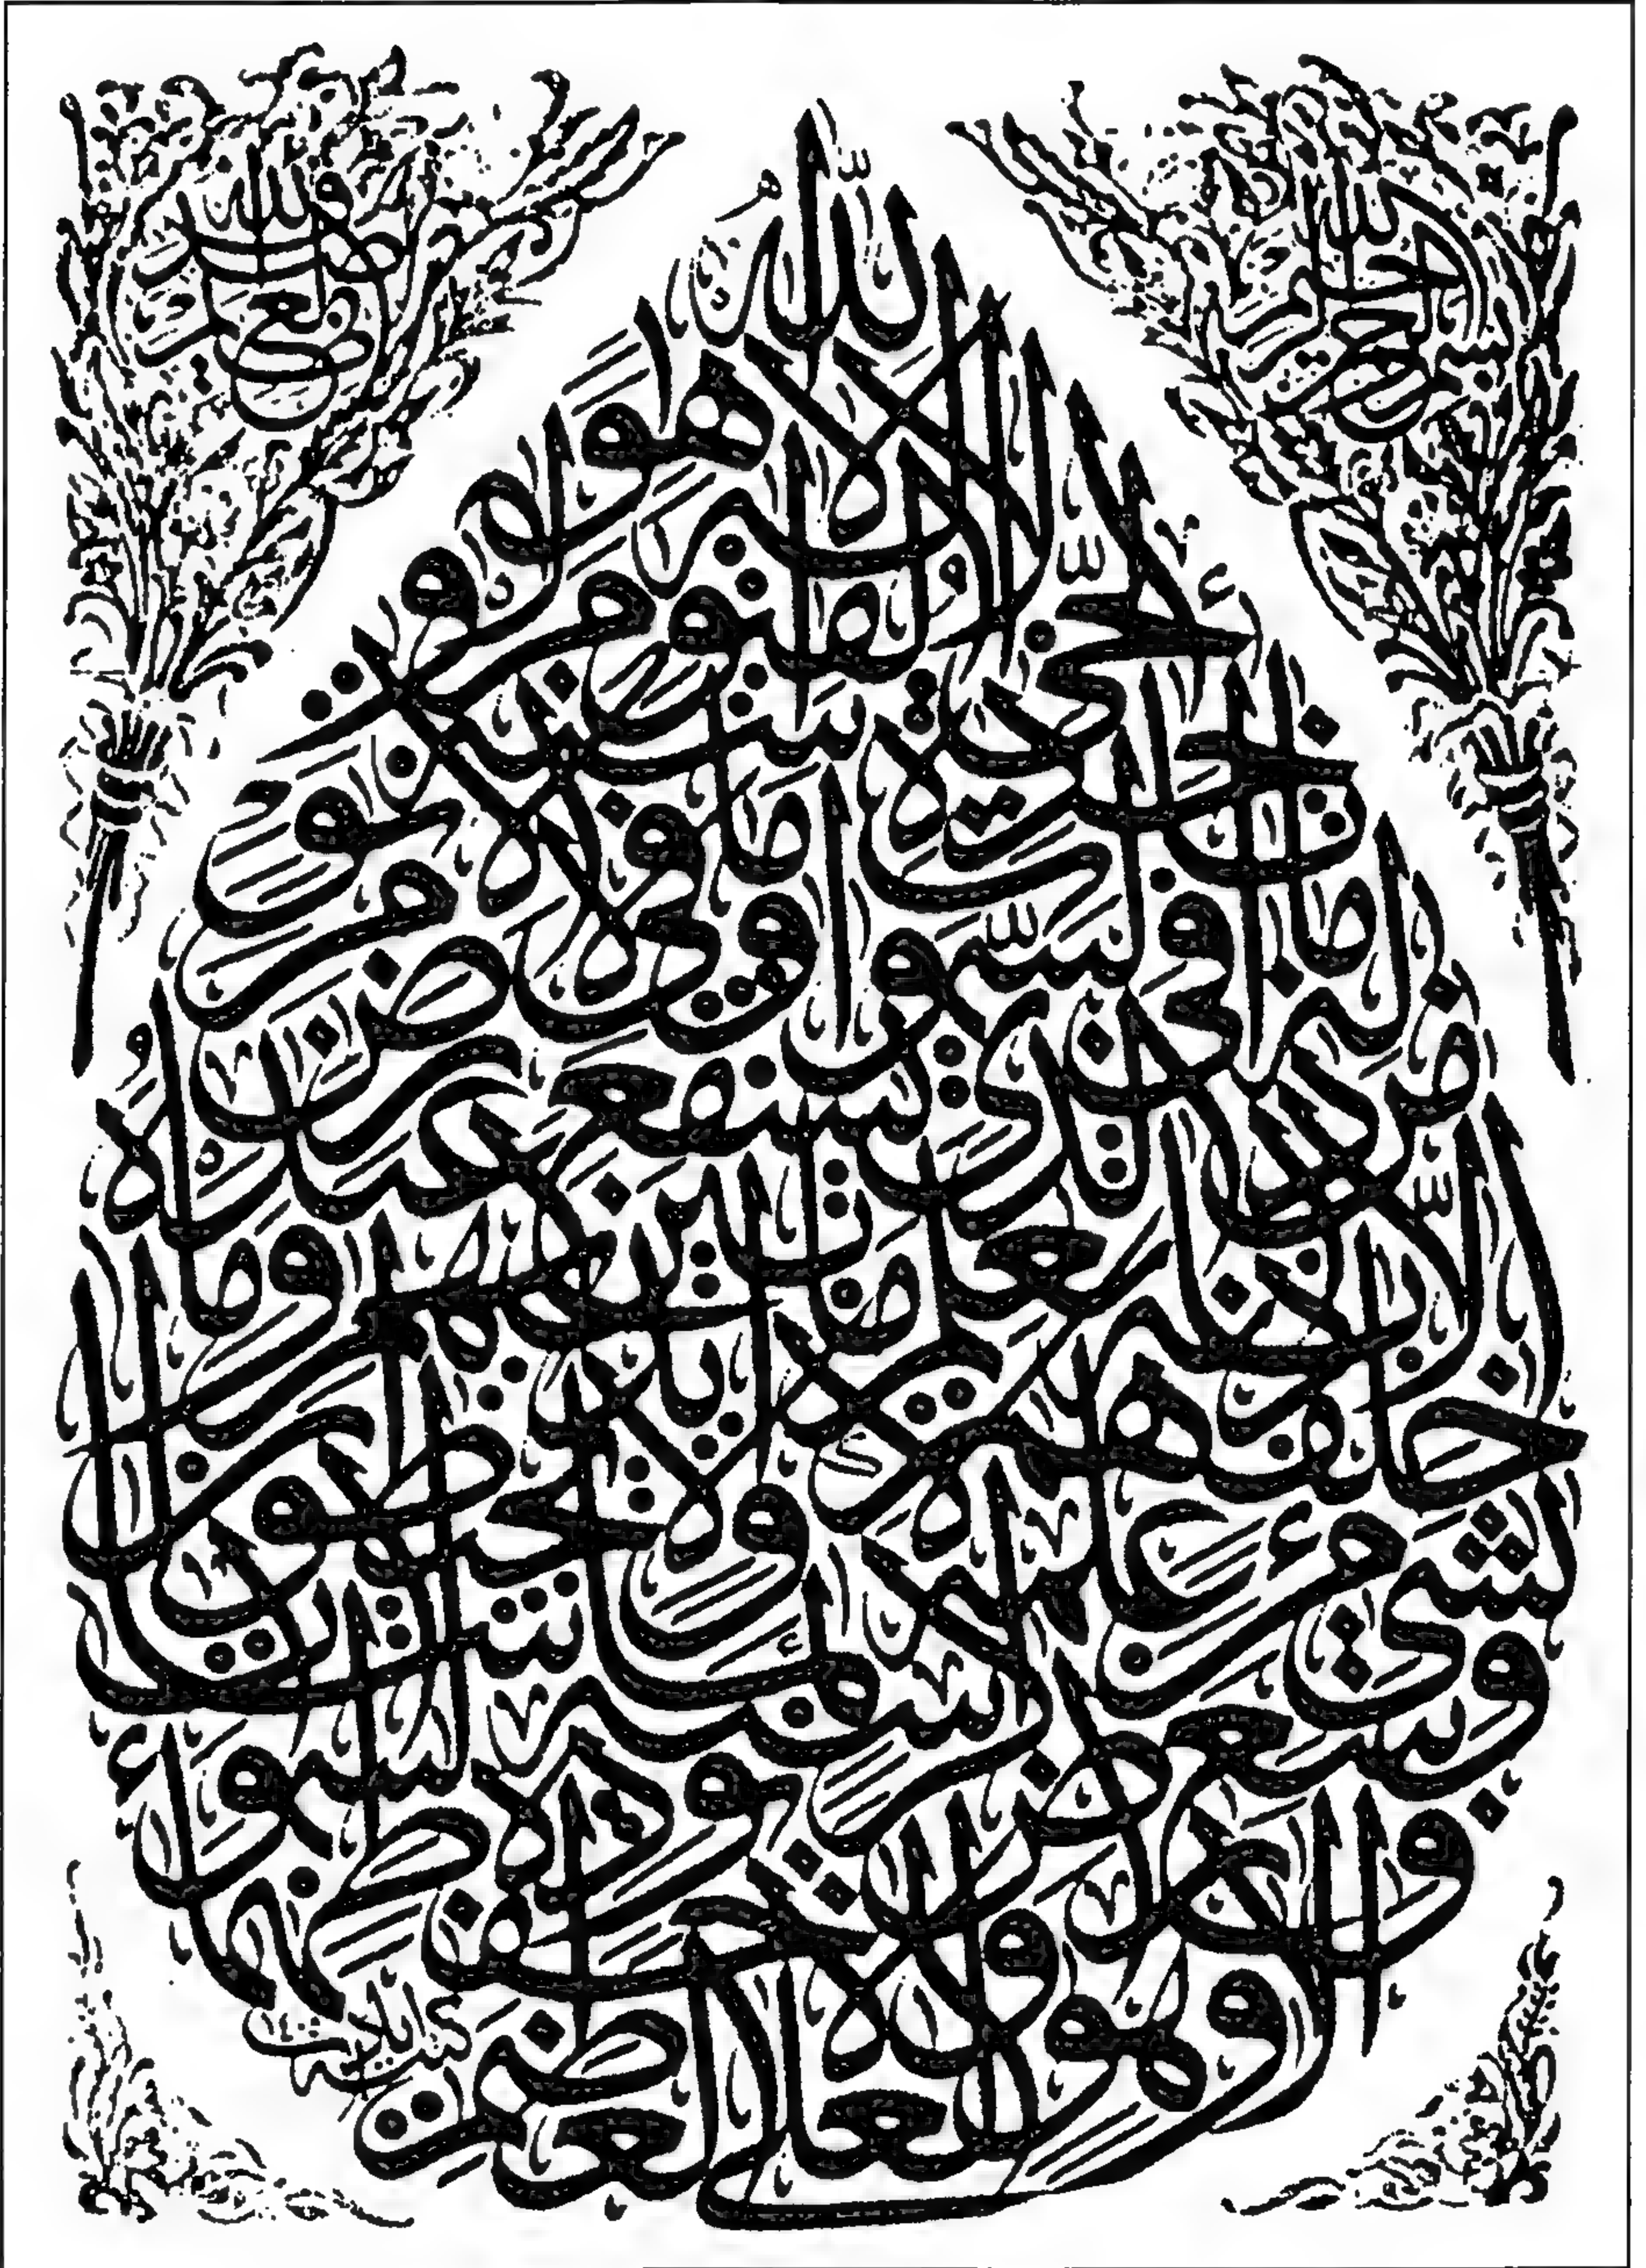 بسم الله الرحمن الرحيم
صدق الله العظيم
الله لا إله إلا هو
الحي القيوم
لا تأخذه سنة ولا نوم
له ما في السموات وما في الأرض
من ذا الذي يشفع عنده إلا بإذنه
يعلم ما بين أيديهم وما خلفهم
ولا يحيطون بشيء من علمه إلا بما شاء
وسع كرسيه السموات والأرض
ولا يؤده حفظهما
وهو العلي العظيم